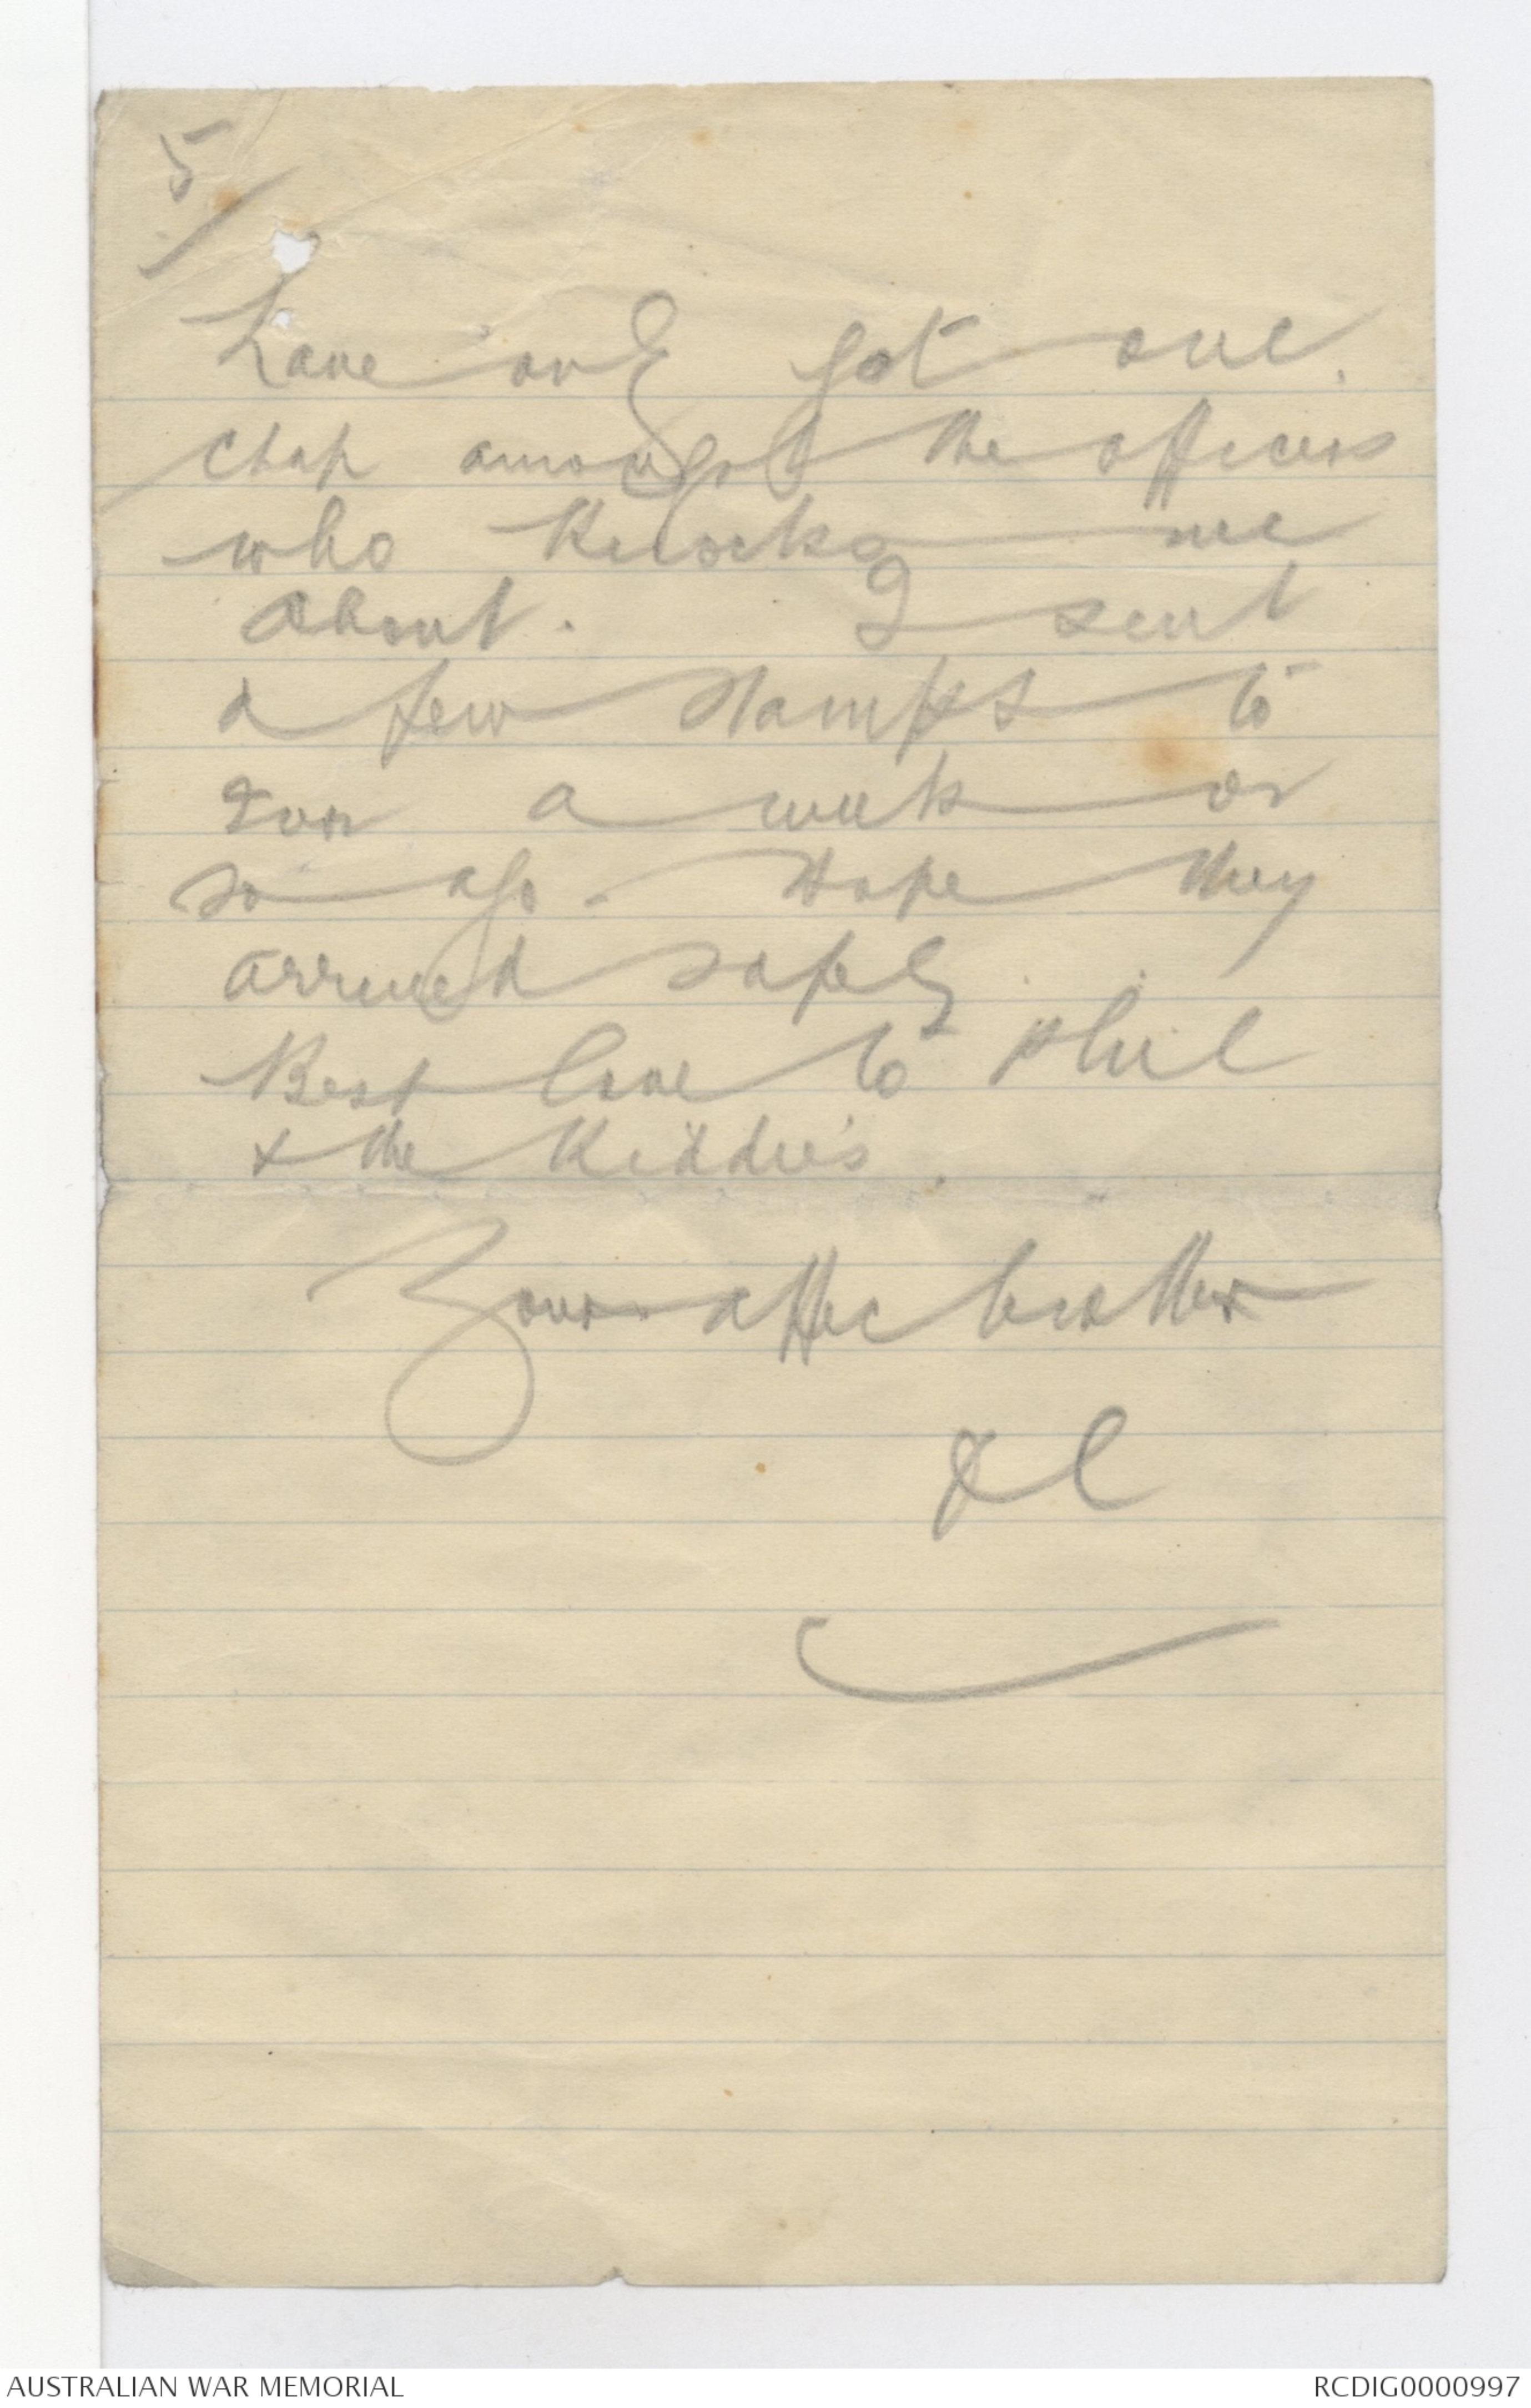 5/
have only got one
chap amongst the officers
who knocks me
about. I sent
a few stamps to
Ivon a week or
so ago. Hope they
arrived safely.
Best love to Phil
& the Kiddie's.
Your affec brother
AUSTRALIAN WAR MEMORIAL
RCDIG0000997